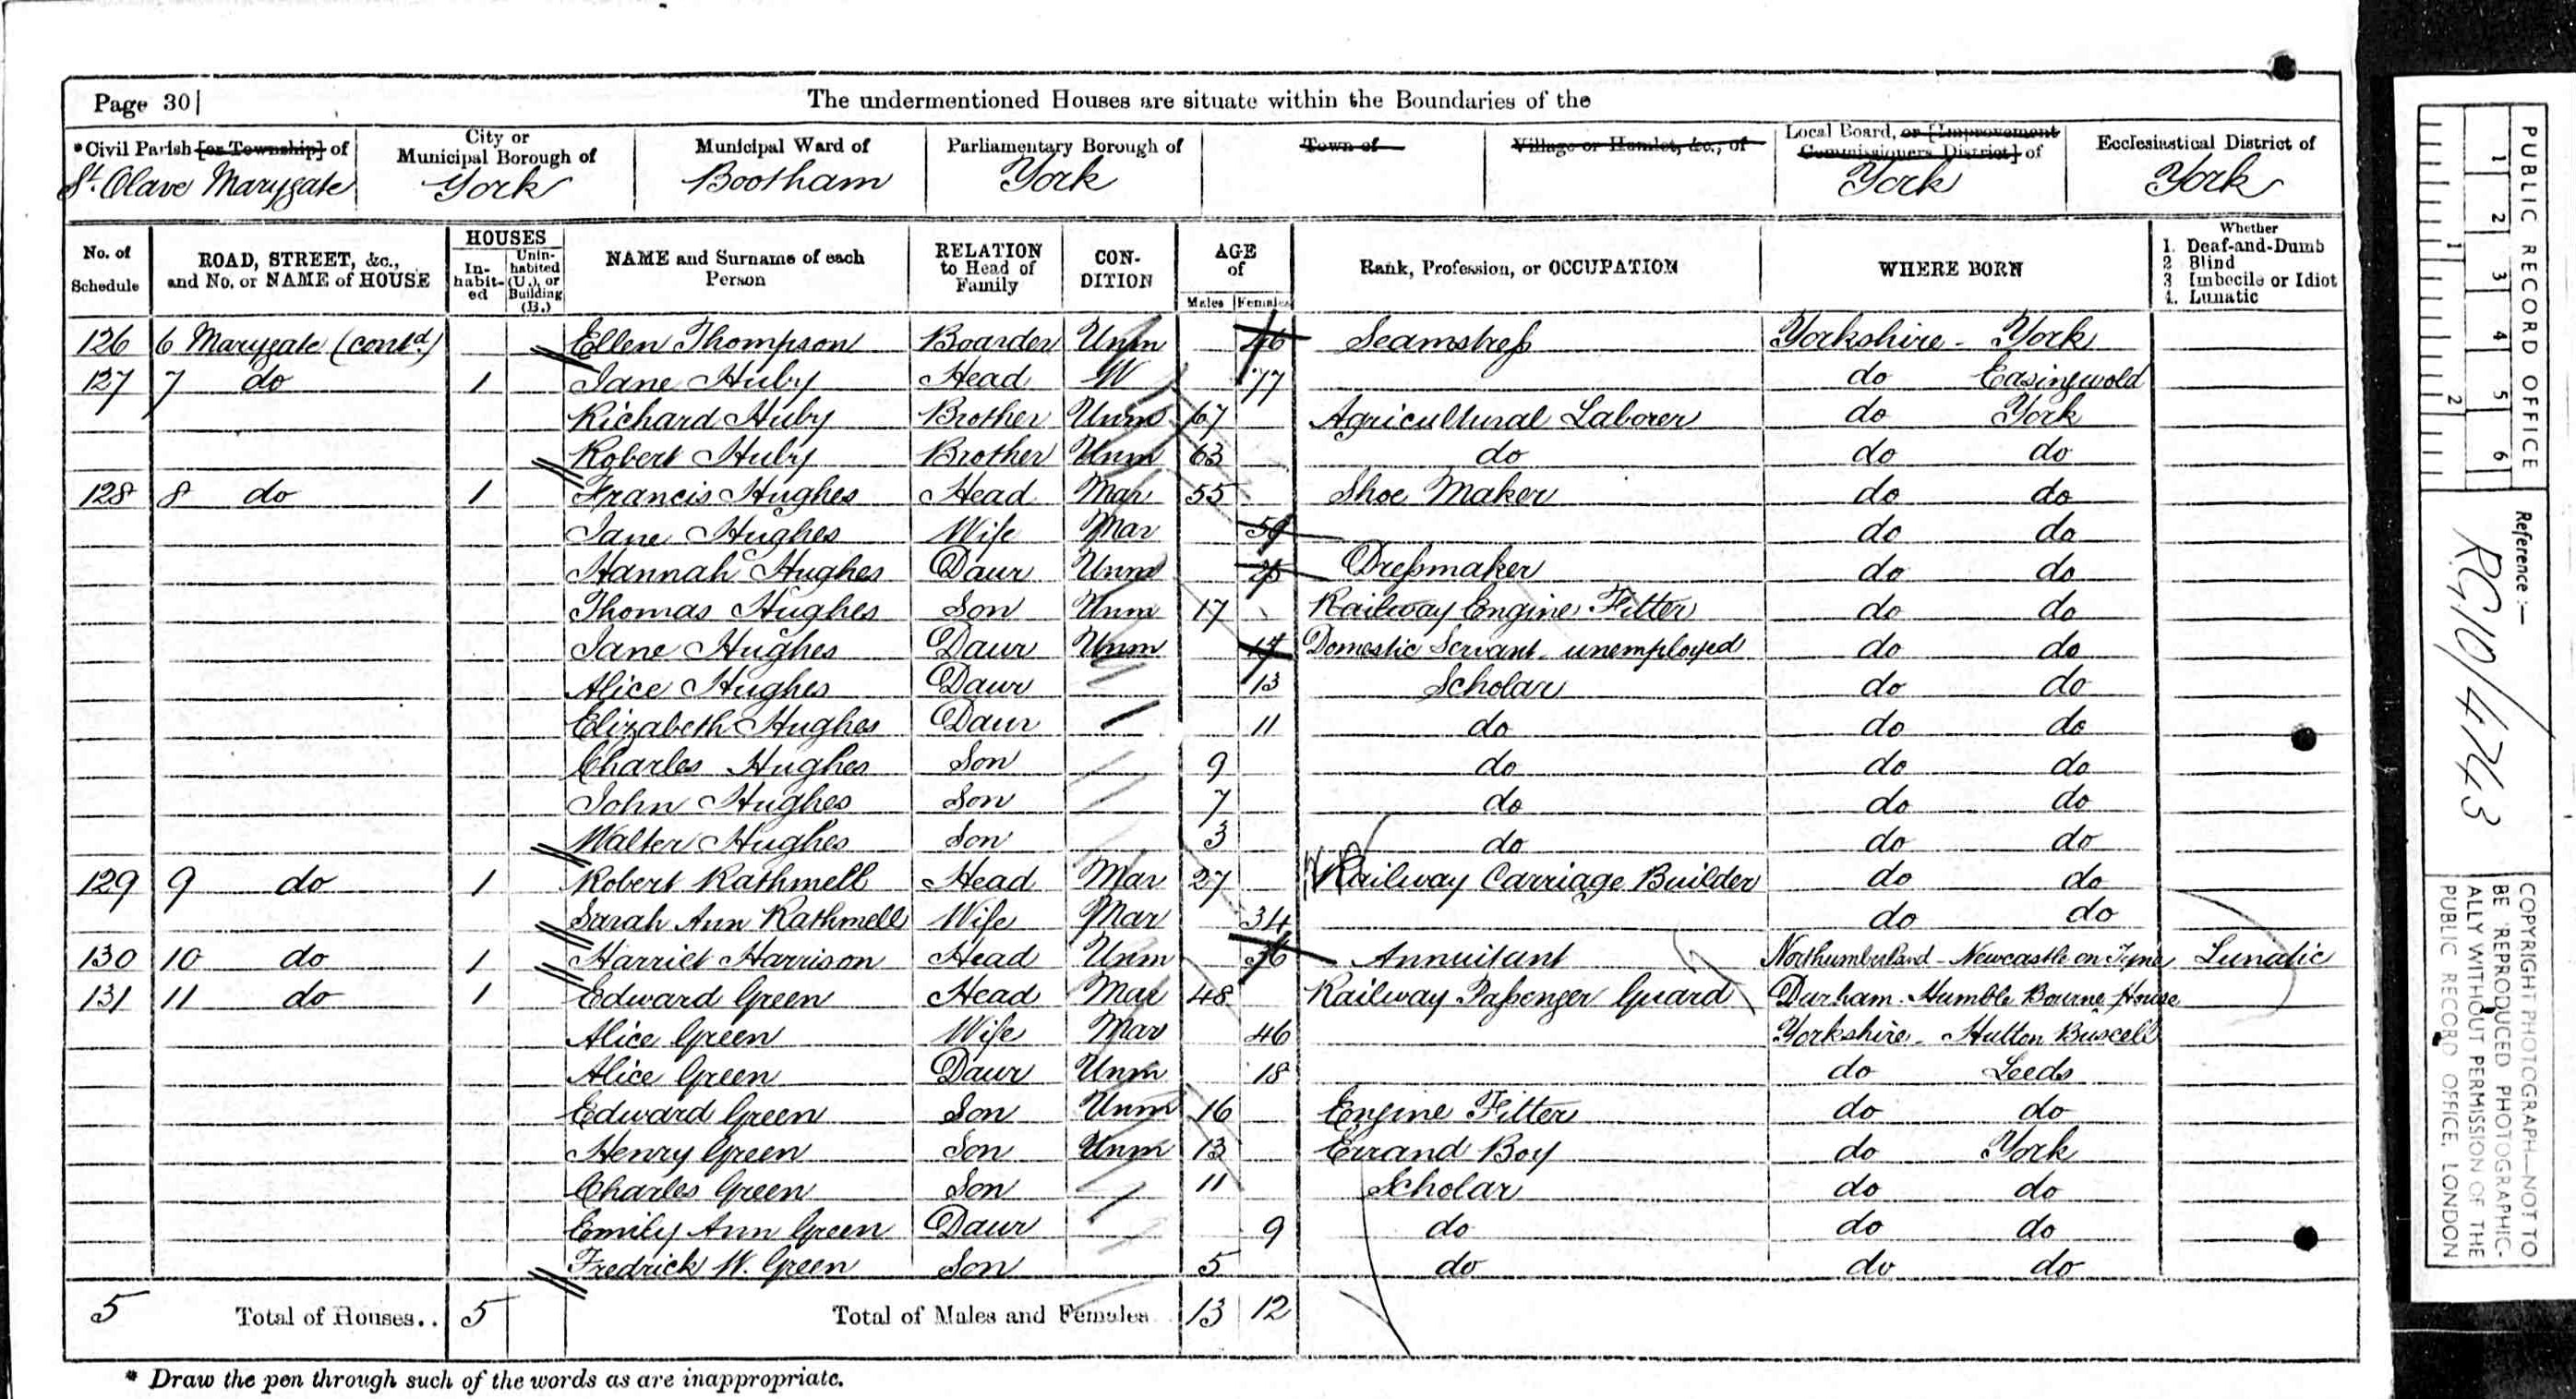 Page 30
The undermentioned Houses are situate within the Boundaries of the
*Civil Parish [or Township] of
City or Municipal Borough of
Municipal Ward of
Parliamentary Borough of
Town of
Village or Hamlet, &c., of
Local Board, or [Improvement Commissioners District] of
Ecclesiastical District of
St. Olave Marygate York Bootham York York York
No. of Schedule
ROAD, STREET, &c., and No. or NAME of HOUSE
HOUSES
In-habit-ed
Unin-habited (U.), or Building (B.)
NAME and Surname of each Person
RELATION to Head of Family
CON-DITION
AGE of
Males Females
Rank, Profession, or OCCUPATION
WHERE BORN
Whether
1. Deaf-and-Dumb
2 Blind
3 Imbecile or Idiot
4. Lunatic
126 6 Marygate (contd.) Ellen Thompson Boarder Unm 46 Seamstress Yorkshire - York
127 7 do 1 Jane Huby Head W 77 do Easingwold
Richard Huby Brother Unm 67 Agricultural Laborer do York
Robert Huby Brother Unm 63 do do do
128 8 do 1 Francis Hughes Head Mar 55 Shoe Maker do do
Jane Hughes Wife Mar do do
Hannah Hughes Daur Unm Dressmaker do do
Thomas Hughes Son Unm 17 Railway Engine Fitter do do
Jane Hughes Daur Unm Domestic Servant - unemployed do do
Alice Hughes Daur 13 Scholar do do
Elizabeth Hughes Daur 11 do do do
Charles Hughes Son 9 do do do
John Hughes Son 7 do do do
Walter Hughes Son 3 do do do
129 9 do 1 Robert Rathmell Head Mar 27 Railway Carriage Builder do do
Sarah Ann Rathmell Wife Mar 34 do do
130 10 do 1 Harriet Harrison Head Unm Annuitant Northumberland - Newcastle on Tyne Lunatic
131 11 do 1 Edward Green Head Mar 48 Railway Passenger Guard Durham - Humble Bourne House
Alice Green Wife Mar 46 Yorkshire - Hutton Buscell
Alice Green Daur Unm 18 do Leeds
Edward Green Son Unm 16 Engine Fitter do do
Henry Green Son Unm 13 Errand Boy do York
Charles Green Son 11 Scholar do do
Emily Ann Green Daur 9 do do do
Fredrick W. Green Son 5 do do do
5 Total of Houses.. 5 Total of Males and Females 13 12
* Draw the pen through such of the words as are inappropriate.
PUBLIC RECORD OFFICE
1 2 3 4 5 6
1 2
Reference :—
RG10/4743
COPYRIGHT PHOTOGRAPH—NOT TO
BE REPRODUCED PHOTOGRAPHIC-
ALLY WITHOUT PERMISSION OF THE
PUBLIC RECORD OFFICE, LONDON